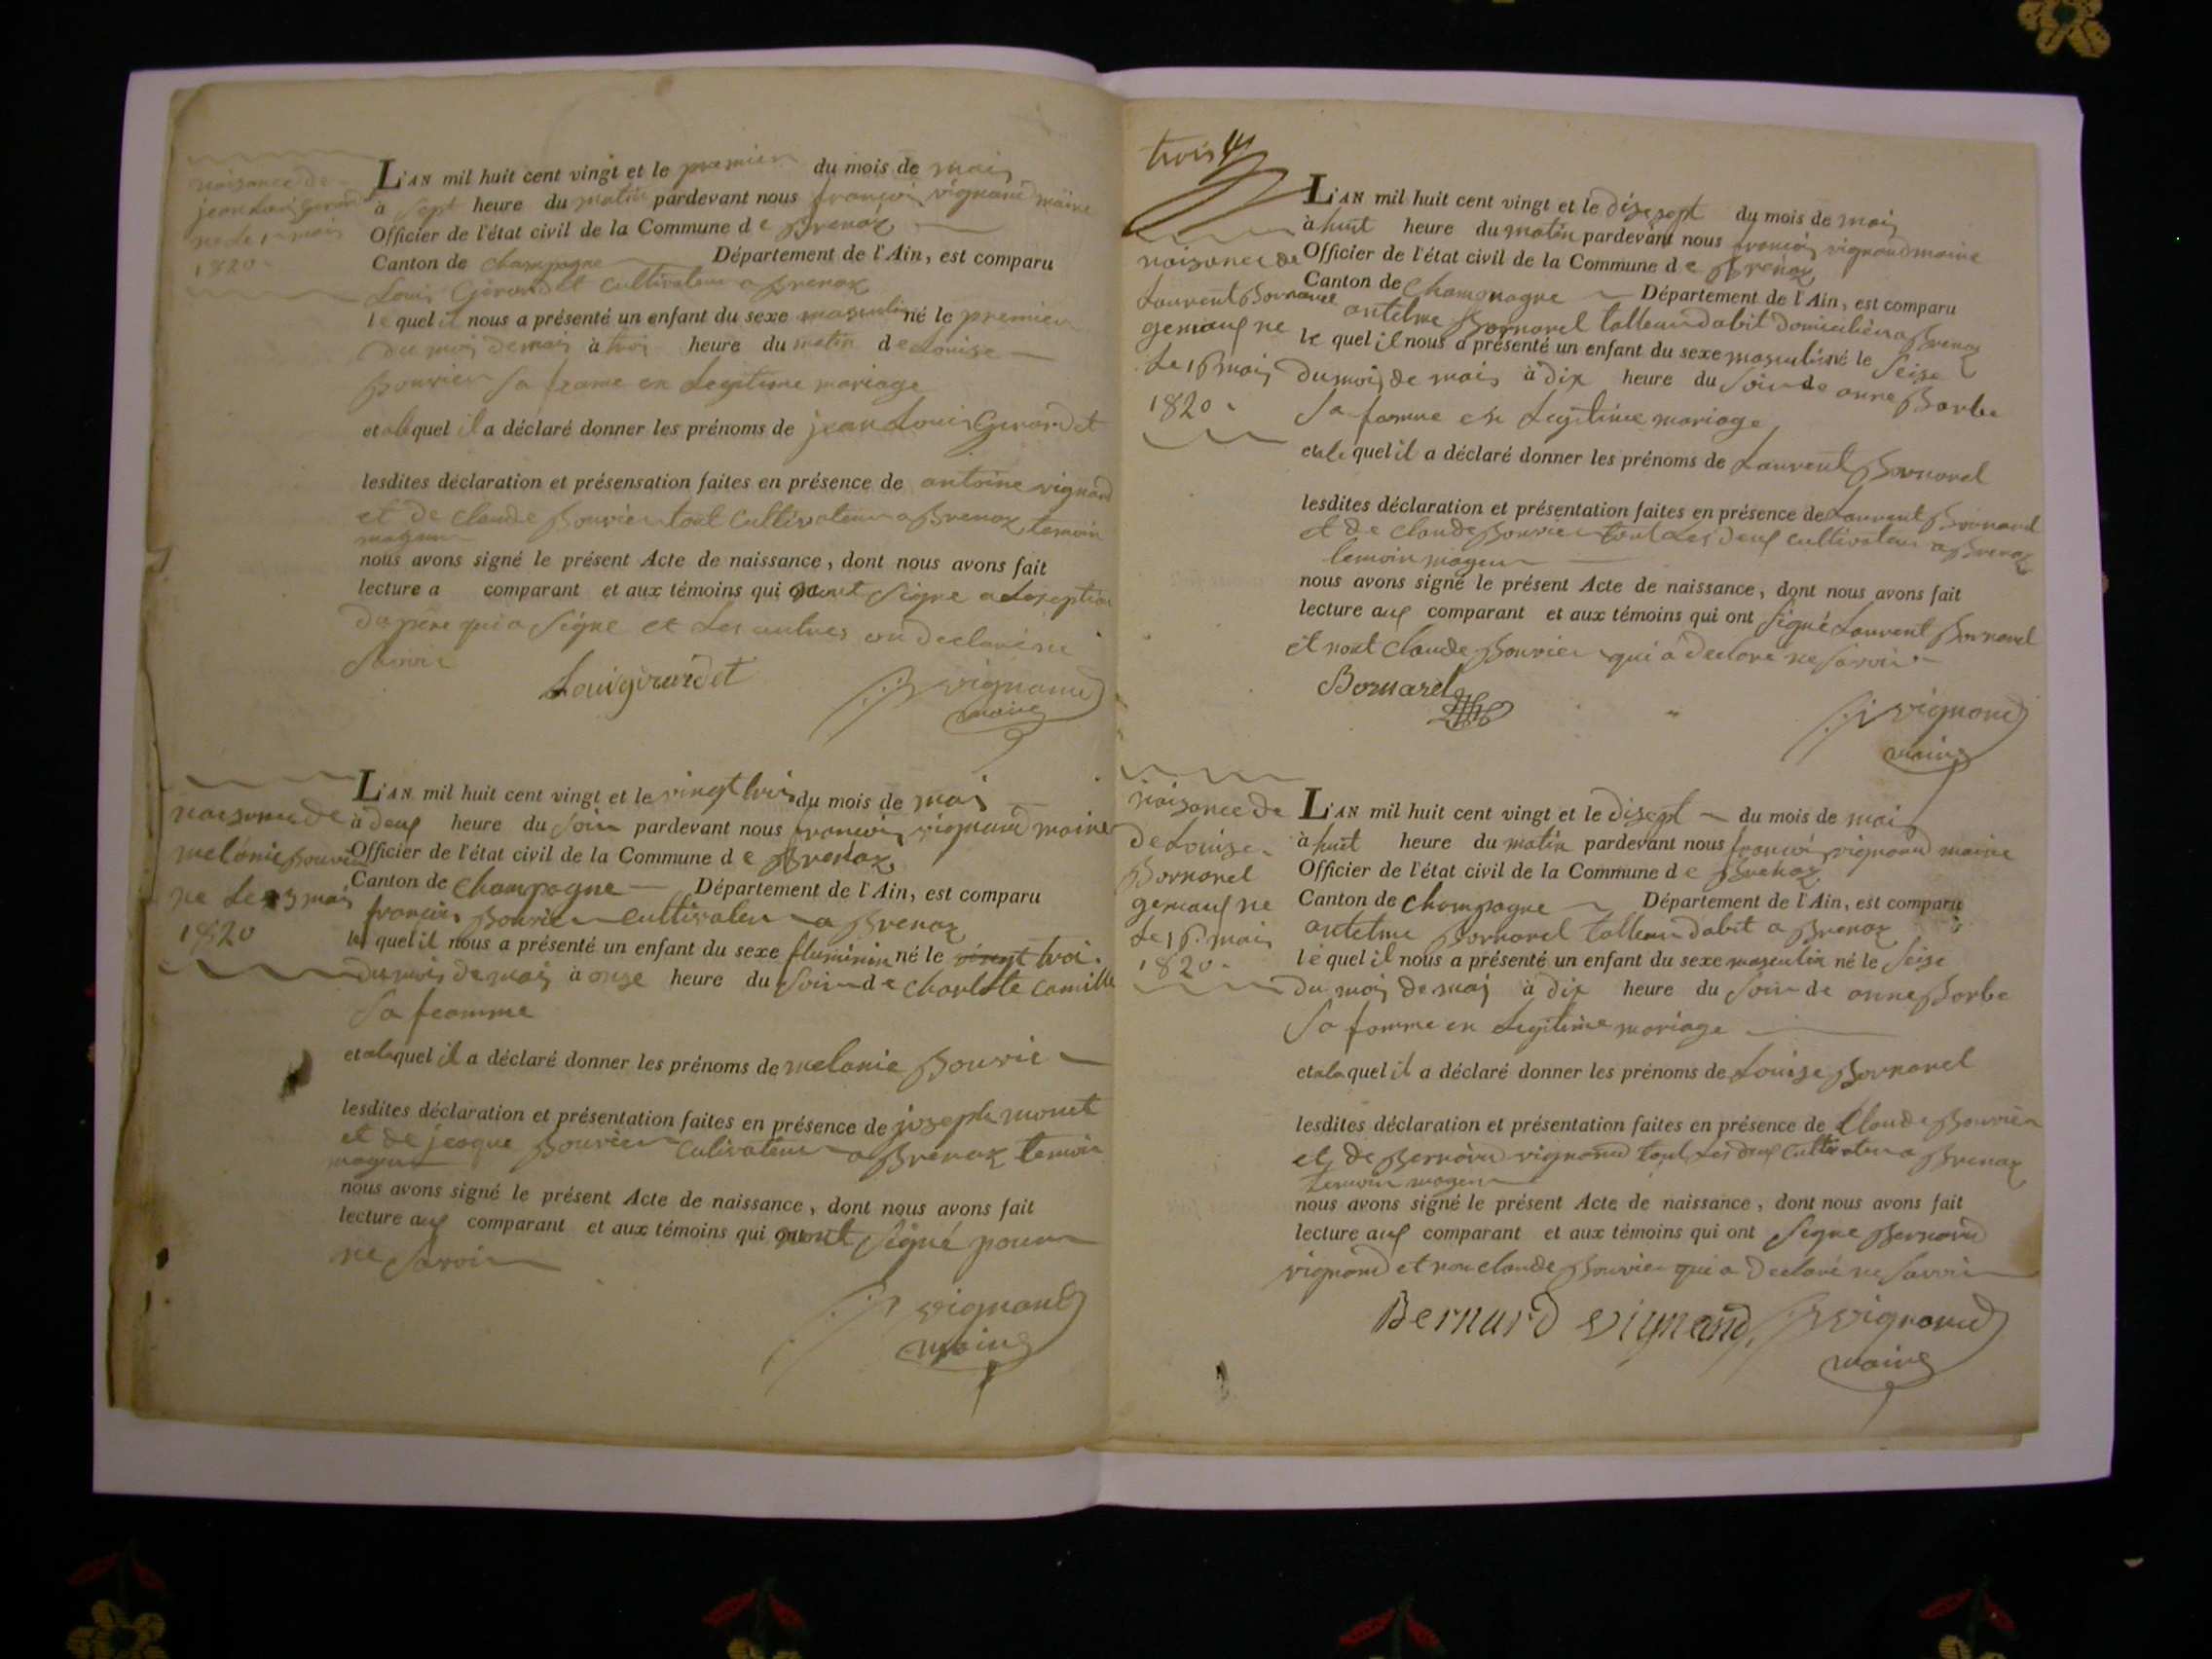 naisance de
jean Louis Gerardet
ne le 1er mais
1820
L'AN mil huit cent vingt et le premier du mois de mais
à sept heure du matin pardevant nous françois vignand maire
Officier de l'état civil de la Commune d e Brenaz
Canton de Champagne Département de l'Ain, est comparu
Louis Gérardet cultivateur a Brenaz
le quel il nous a présenté un enfant du sexe masculin né le premier
du mois de mais à troi heure du matin de Louise
Bouvier sa feame en Legitime mariage
et alequel il a déclaré donner les prénoms de jean Louis Gerardet
lesdites déclaration et présensation faites en présence de antoine vignand
et de Claude Bouvier tout Cultivateur a Brenaz temoin
mageur
nous avons signé le présent Acte de naissance, dont nous avons fait
lecture a comparant et aux témoins qui nont signe a Lexeption
du père qui a signe et Les autres on declaré ne
savoir
Louis girardet
vignand
maire
naisance de
melanie Bouvier
ne Le 23 mais
1820
L'AN mil huit cent vingt et le vingt trois du mois de mais
à deux heure du soir pardevant nous françois vignand maire
Officier de l'état civil de la Commune d e Brenaz
Canton de Champagne Département de l'Ain, est comparu
françois Bouvier cultivateur a Brenaz
le quel il nous a présenté un enfant du sexe né le vingt troi
du mois de mais à onze heure du soir d e Charlotte Camille
sa feamme
et alaquel il a déclaré donner les prénoms de melanie Bouvie
lesdites déclaration et présentation faites en présence de joseph monet
et de jeaque Bouvier Cultivateur a Brenaz temoin
mageur
nous avons signé le présent Acte de naissance, dont nous avons fait
lecture aux comparant et aux témoins qui nont signé pour
ne savoir
vignand
maire
trois
naisance de
Laurent Bornarel
gemaux ne
Le 16 mais
1820
L'AN mil huit cent vingt et le disesept du mois de mais
à huit heure du matin pardevant nous françois vignand maire
Officier de l'état civil de la Commune d e Brenaz
Canton de Champagne Département de l'Ain, est comparu
antelme Bornarel talleur dabit domicilié a Brenaz
le quel il nous a présenté un enfant du sexe masculin né le seise
du mois de mais à dix heure du soir de anne Barbe
sa famme en Legitime mariage
et ale quel il a déclaré donner les prénoms de Laurent Bornarel
lesdites déclaration et présentation faites en présence de Laurent Bornarel
et de Claude Bouvier tout Les deux cultivateur a Brenaz
temoin mageur
nous avons signé le présent Acte de naissance, dont nous avons fait
lecture aux comparant et aux témoins qui ont signé Laurent Bornarel
et nont Claude Bouvier qui a declare ne savoir
Bornarel
vignand
maire
naisance de
de Louise
Bornarel
gemaux ne
Le 16 mais
1820
L'AN mil huit cent vingt et le disept du mois de mais
à huit heure du matin pardevant nous françois vignand maire
Officier de l'état civil de la Commune d e Brenaz
Canton de Champagne Département de l'Ain, est comparu
antelme Bornarel talleur dabit a Brenaz
le quel il nous a présenté un enfant du sexe masculin né le seise
du mois de mais à dix heure du soir de anne Barbe
sa famme en Legitime mariage
et ala quel il a déclaré donner les prénoms de Louise Bornarel
lesdites déclaration et présentation faites en présence de Claude Bouvier
et de Bernard vignand tout Les deux Cultivateur a Brenaz
temoin mageur
nous avons signé le présent Acte de naissance, dont nous avons fait
lecture aux comparant et aux témoins qui ont signe Bernard
vignand et non claude Bouvier qui a declaré ne savoir
Bernard vignand vignand
maire